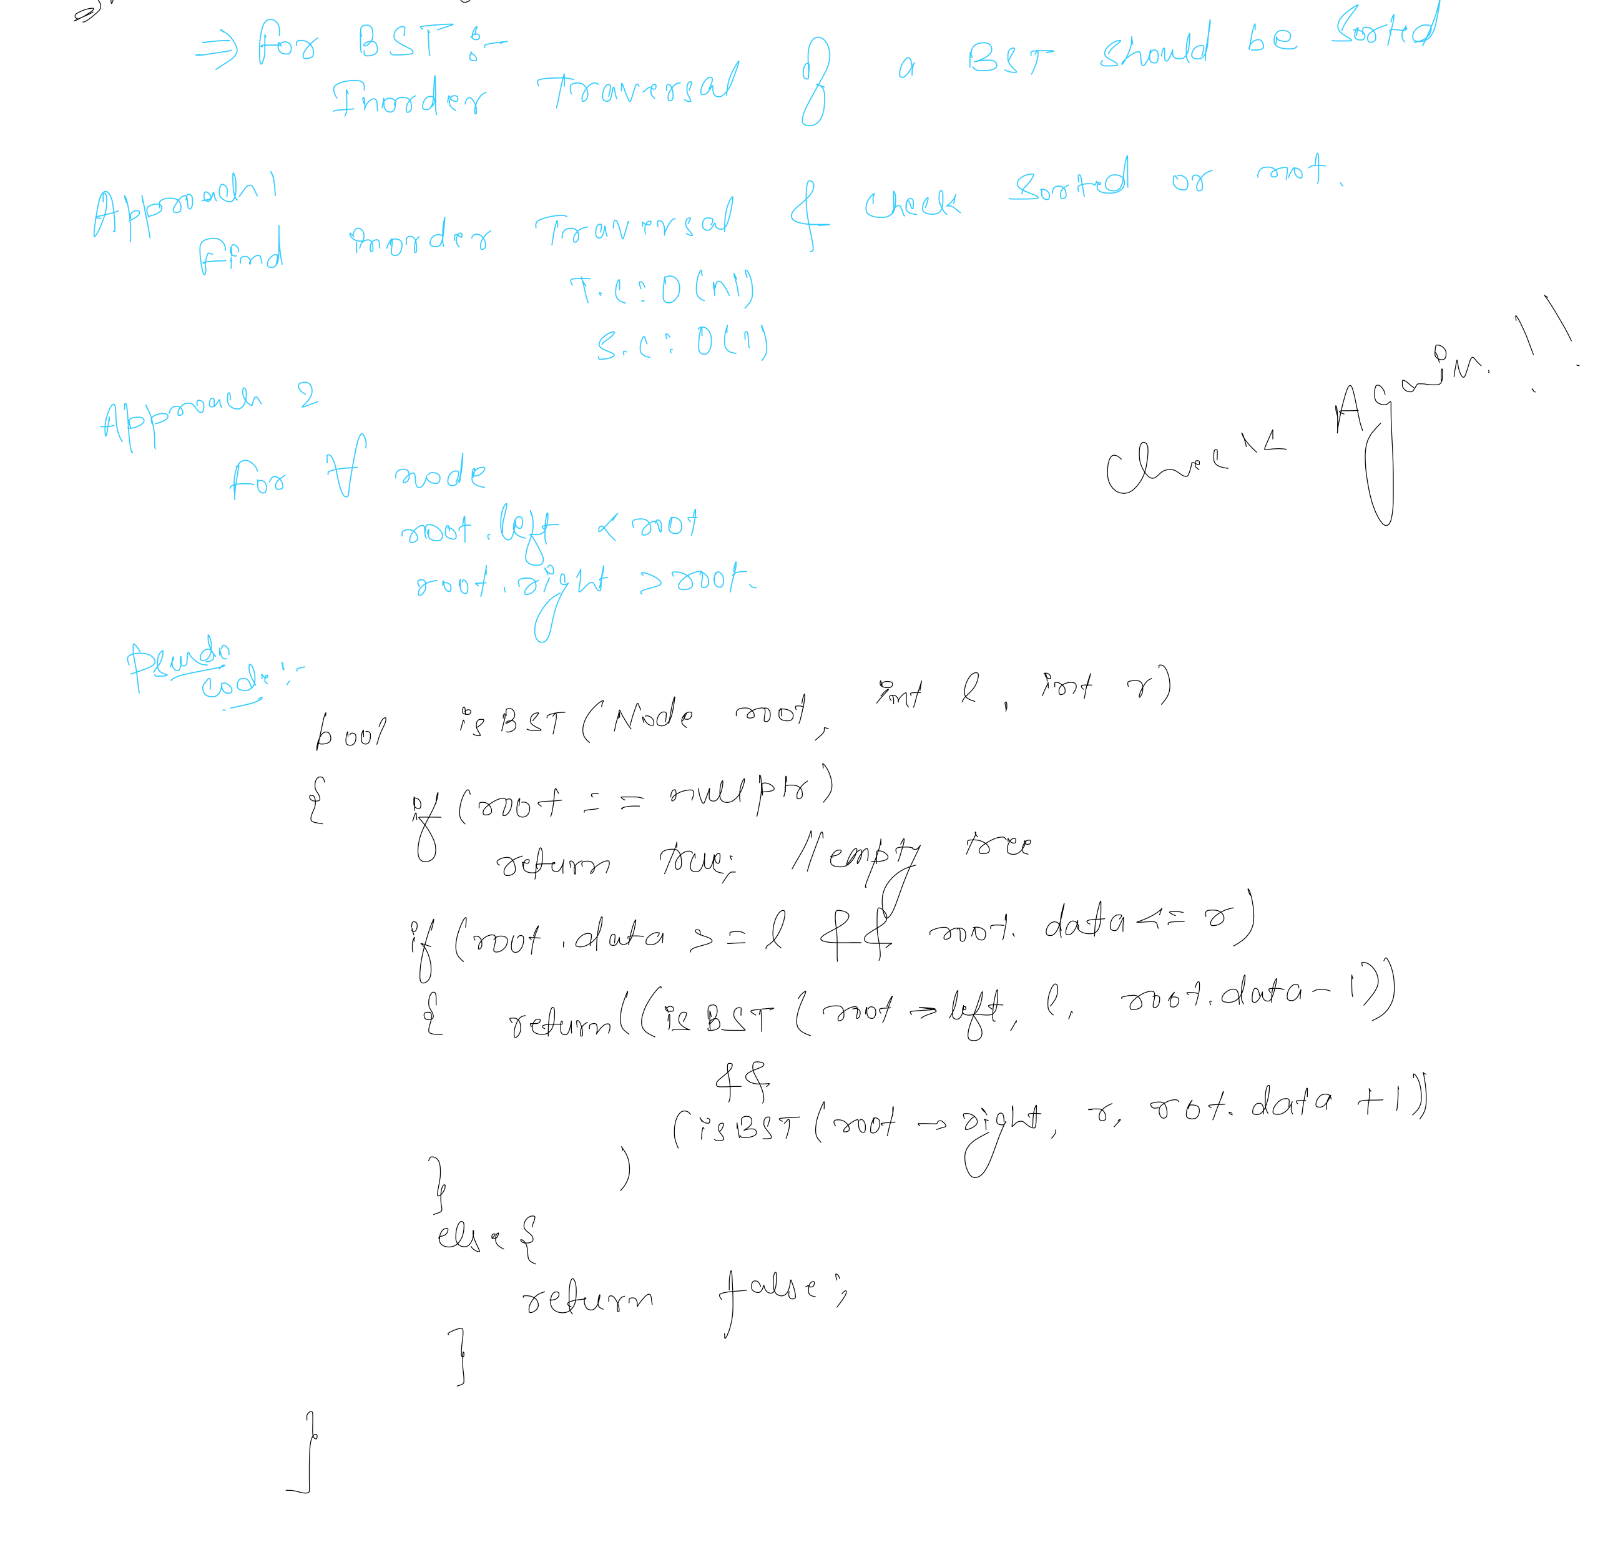 ⇒ for BST :-
Inorder Traversal of a BST should be sorted
Approach 1
Find inorder Traversal & check sorted or not.
T.C : O(n)
S.C : O(1)
Check Again!!
Approach 2
for ∀ node
root.left < root
root.right > root.
Pseudo
code :-
bool isBST (Node root, int l, int r)
{ if (root == nullptr)
return true; // empty tree
if (root.data >= l && root.data <= r)
{ return ((isBST (root → left, l, root.data - 1))
&&
(isBST (root → right, r, root.data + 1))
} )
else {
return false;
}
}